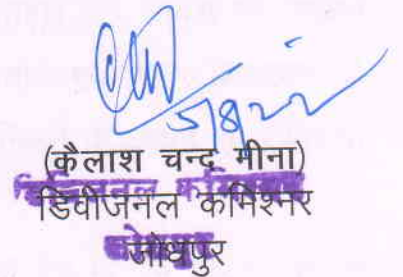 5/8/22
(कैलाश चन्द मीना)
डिवीजनल कमिश्नर
जोधपुर